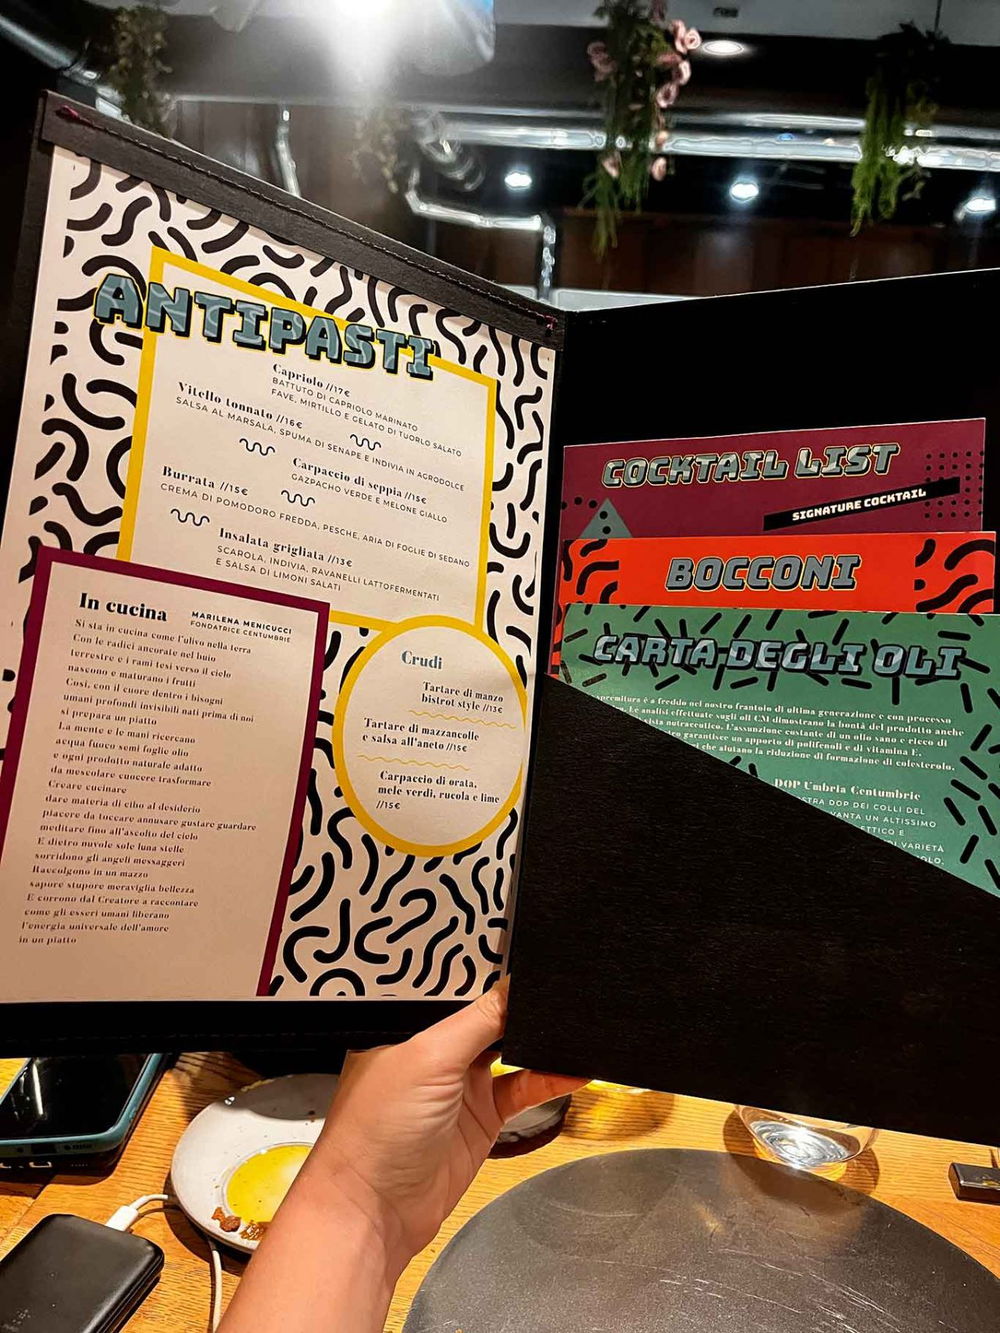 ANTIPASTI
Capriolo //17€
BATTUTO DI CAPRIOLO MARINATO
FAVE, MIRTILLO E GELATO DI TUORLO SALATO
Vitello tonnato //16€
SALSA AL MARSALA, SPUMA DI SENAPE E INDIVIA IN AGRODOLCE
Carpaccio di seppia //15€
GAZPACHO VERDE E MELONE GIALLO
Burrata //15€
CREMA DI POMODORO FREDDA, PESCHE, ARIA DI FOGLIE DI SEDANO
Insalata grigliata //13€
SCAROLA, INDIVIA, RAVANELLI LATTOFERMENTATI
E SALSA DI LIMONI SALATI
In cucina
MARILENA MENICUCCI
FONDATRICE CENTUMBRIE
Si sta in cucina come l'ulivo nella terra
Con le radici ancorate nel buio
terrestre e i rami tesi verso il cielo
nascono e maturano i frutti
Così, con il cuore dentro i bisogni
umani profondi invisibili nati prima di noi
si prepara un piatto
La mente e le mani ricercano
acqua fuoco semi foglie olio
e ogni prodotto naturale adatto
da mescolare cuocere trasformare
Creare cucinare
dare materia di cibo al desiderio
piacere da toccare annusare gustare guardare
meditare fino all'ascolto del cielo
E dietro nuvole sole luna stelle
sorridono gli angeli messaggeri
Raccolgono in un mazzo
sapore stupore meraviglia bellezza
E corrono dal Creatore a raccontare
come gli esseri umani liberano
l'energia universale dell'amore
in un piatto
Crudi
Tartare di manzo
bistrot style //13€
Tartare di mazzancolle
e salsa all'aneto //15€
Carpaccio di orata,
mele verdi, rucola e lime
//15€
COCKTAIL LIST
SIGNATURE COCKTAIL
BOCCONI
CARTA DEGLI OLI
è a freddo nel nostro frantoio di ultima generazione e con processo
Le analisi effettuate sugli oli CM dimostrano la bontà del prodotto anche
vista nutraceutico. L'assunzione costante di un olio sano e ricco di
garantisce un apporto di polifenoli e di vitamina E,
che aiutano la riduzione di formazione di colesterolo.
DOP Umbria Centumbrie
DOP DEI COLLI DEL
VANTA UN ALTISSIMO
E
VARIETÀ